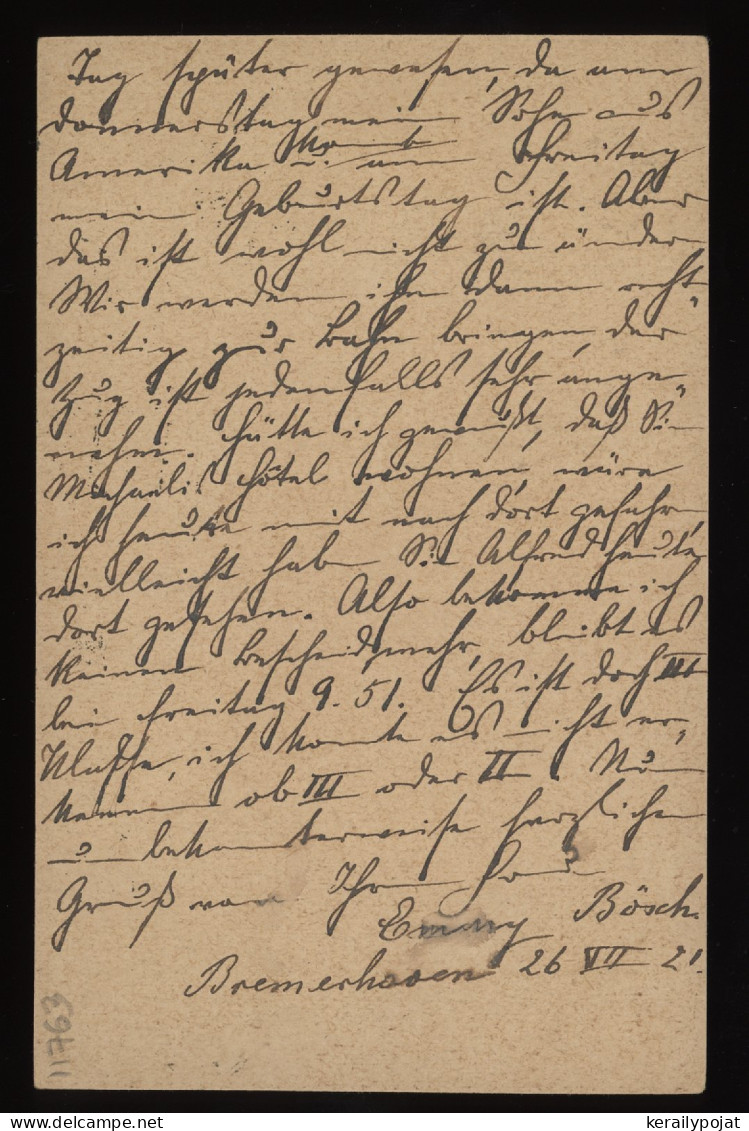 Tag später gewesen, da am
Donnerstag mein Sohn aus
Amerika kommt u. am Freitag
mein Geburtstag ist. Aber
das ist wohl nicht zu ändern
Wir werden ihn dann recht-
zeitig zur Bahn bringen, der
Zug ist jedenfalls sehr ange-
nehm. Hätte ich gewußt, daß Sie
Michaelis Hôtel wohnen, wäre
ich heute mit nach dort gefahren,
vielleicht haben Sie Alfred heute
dort gesehen. Also bekomme ich
keinen Bescheid mehr, bleibt es
bei Freitag 9.51. Es ist doch III
Klasse, ich konnte es nicht er-
kennen ob III oder II. Un-
bekannterweise herzlichen
Gruß von Ihrer Frau
Emmy Bösch.
Bremerhaven 26 VII 21.
11763
kerailypojat.com